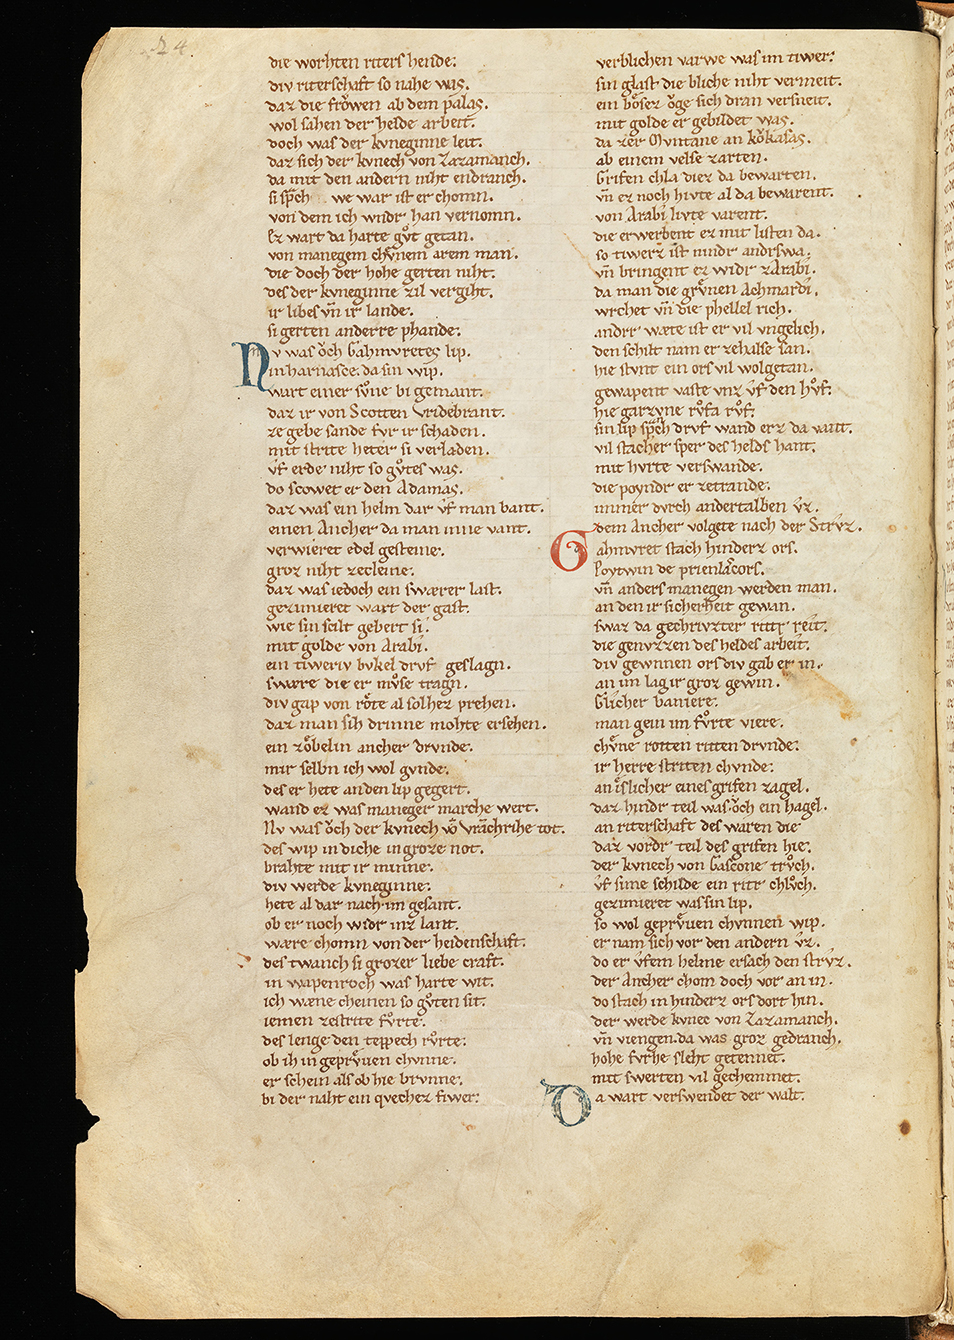 24.
die worhten riters hende.
div riterschaft so nahe was.
daz die frowen ab dem palas.
wol sahen der helde arbeit.
doch was der kvneginne leit.
daz sich der kvnech von Zazamanch.
da mit den andern niht endranch.
si sp̃ch we war ist er chomn.
von dem ich wndr han vernomn.
Ez wart da harte gv̊t getan.
von manegem chv̊nem arem man.
die doch der hohe gerten niht.
des der kvneginne zil vergiht.
ir libes vñ ir lande.
si gerten anderre phande.
Nv was oͮch Gahmvretes lip.
in harnasce. da sin wip.
wart einer sv̊ne bi gemant.
daz ir von Scotten Vridebrant.
ze gebe sande fvr ir schaden.
mit strite heter si verladen.
v̂f erde niht so gv̊tes was.
do scowet er den Adamas.
daz was ein helm dar v̂f man bant.
einen Ancher da man inne vant.
verwieret edel gesteine.
groz niht zecleine.
daz was iedoch ein swærer last.
gezimieret wart der gast.
wie sin scilt gehert si.
mit golde von Arabi.
ein tiweriv bvkel drvf geslagn.
swære die er mv̊se tragn.
div gap von rôte al solhez prehen.
daz man sih drinne mohte ersehen.
ein zôbelin ancher drvnde.
mir selbn ich wol gvnde.
des er hete an den lip gegert.
wand ez was maneger marche wert.
Nv was oͮch der kvnech võ Vrãchrihe tot.
des wip in diche in groze not.
brahte mit ir minne.
div werde kvneginne.
hete al dar nach im gesant.
ob er noch widr inz lant.
wære chomn von der heidenschaft.
des twanch si grozer liebe craft.
in wapenroch was harte wit.
ich wæne cheinen so gv̊ten sit.
iemen zestrite fv̊rte.
des lenge den teppech rv̊rte.
ob ih in geprv̊uen chvnne.
er schein als ob hie brvnne.
bi der naht ein qvechez fiwer.
verblichen varwe was im tiwer.
sin glast die bliche niht vermeit.
ein bôsez oͮge sich dran versneit.
mit golde er gebildet was.
da zer Mvntane an kôkasas.
ab einem velse zarten.
Grifen chla diez da bewarten.
vñ ez noch hivte al da bewarent.
von Arabi livte varent.
die erwerbent ez mit listen da.
so tiwerz ist nindr andrswa.
vñ bringent ez widr zArabi.
da man die grv̊nen Achmardi.
wrchet vñ die phellel rich.
andrr wæte ist er vil vngelich.
den schilt nam er zehalse san.
hie stvnt ein ors vil wolgetan.
gewapent vaste vnz v̂f den hv̊f.
hie garzvne rv̊fa rv̊f.
sin lip sp̃ch drvf wand erz da vant.
vil starcher sper des helds hant.
mit hvrte verswande.
die poyndr er zetrande.
immer dvrch andertalben v̂z.
dem Ancher volgete nach der Strvz.
Gahmvret stach hinderz ors.
Poytwin de prienlacors.
vñ anders manegen werden man.
an den ir sicherheit gewan.
swaz da gechrivzter ritr reit.
die genvzzen des heldes arbeit.
div gewnnen ors div gab er in.
an im lag ir groz gewin.
Glicher baniere.
man gein im fv̊rte viere.
chv̊ne rotten ritten drvnde.
ir herre striten chvnde.
an islicher eines grifen zagel.
daz hindr teil was oͮch ein hagel.
an riterschaft des waren die
daz vordr teil des grifen hie.
der kvnech von Gascone trv̊ch.
v̂f sime schilde ein ritr chlv̊ch.
gezimieret was sin lip.
so wol geprv̊uen chvnnen wip.
er nam sich vor den andern v̂z.
do er v̂fem helme ersach den strv̂z.
der Ancher chom doch vor an in.
do stach in hinderz ors dort hin.
der werde kvnec von Zazamanch.
vñ viengen. da was groz gedranch.
hohe fvrhe sleht getennet.
mit swerten vil gechemmet.
Da wart verswendet der walt.